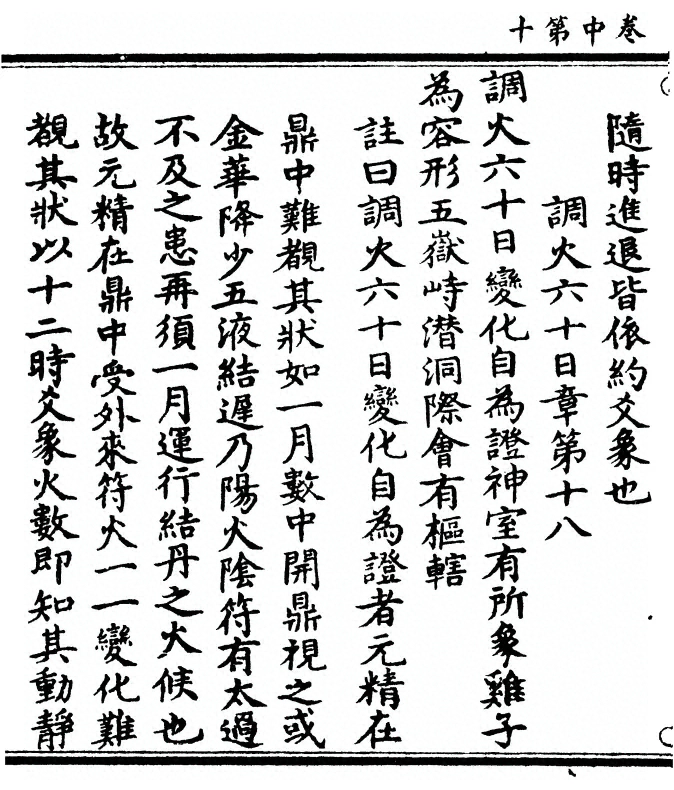 卷中第十
隨時進退皆依約爻象也
調火六十日章第十八
調火六十日變化自為證神室有所象雞子
為容形五嶽峙潛洞際會有樞轄
註曰調火六十日變化自為證者元精在
鼎中難覩其狀如一月數中開鼎視之或
金華降少五液結遲乃陽火陰符有太過
不及之患再須一月運行結丹之火候也
故元精在鼎中受外來符火一一變化難
覩其狀以十二時爻象火數即知其動靜